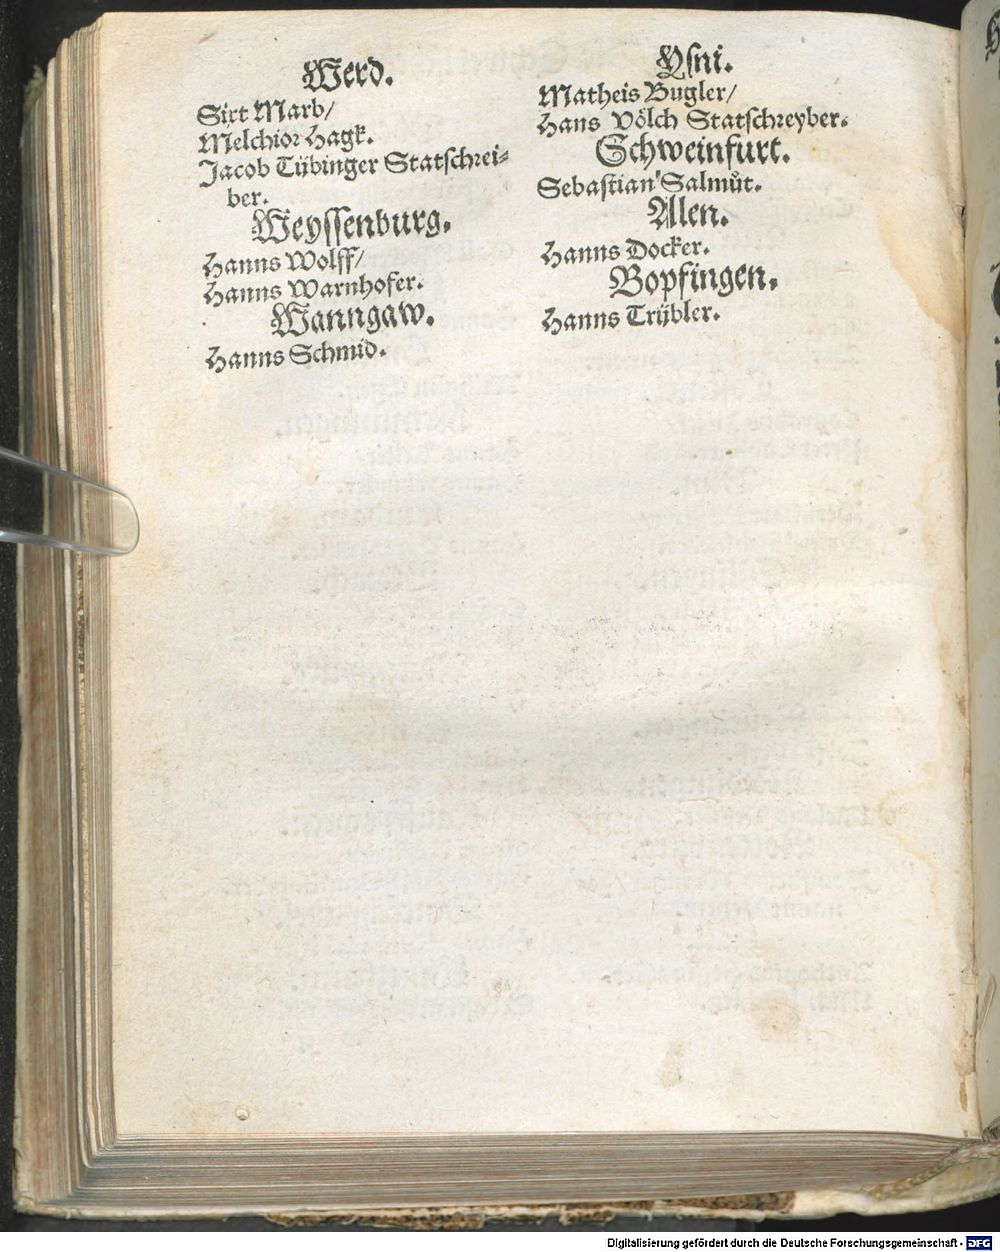 Werd.
Sixt Marb/
Melchior Hagk.
Jacob Tübinger Statschrei⸗
ber.
Weyssenburg.
Hanns Wolff/
Hanns Warnhofer.
Wanngaw.
Hanns Schmid.
Ysni.
Matheis Bugler/
Hans Völch Statschreyber.
Schweinfurt.
Sebastian Salmůt.
Alen.
Hanns Docker.
Bopfingen.
Hanns Trübler.
Digitalisierung gefördert durch die Deutsche Forschungsgemeinschaft - DFG